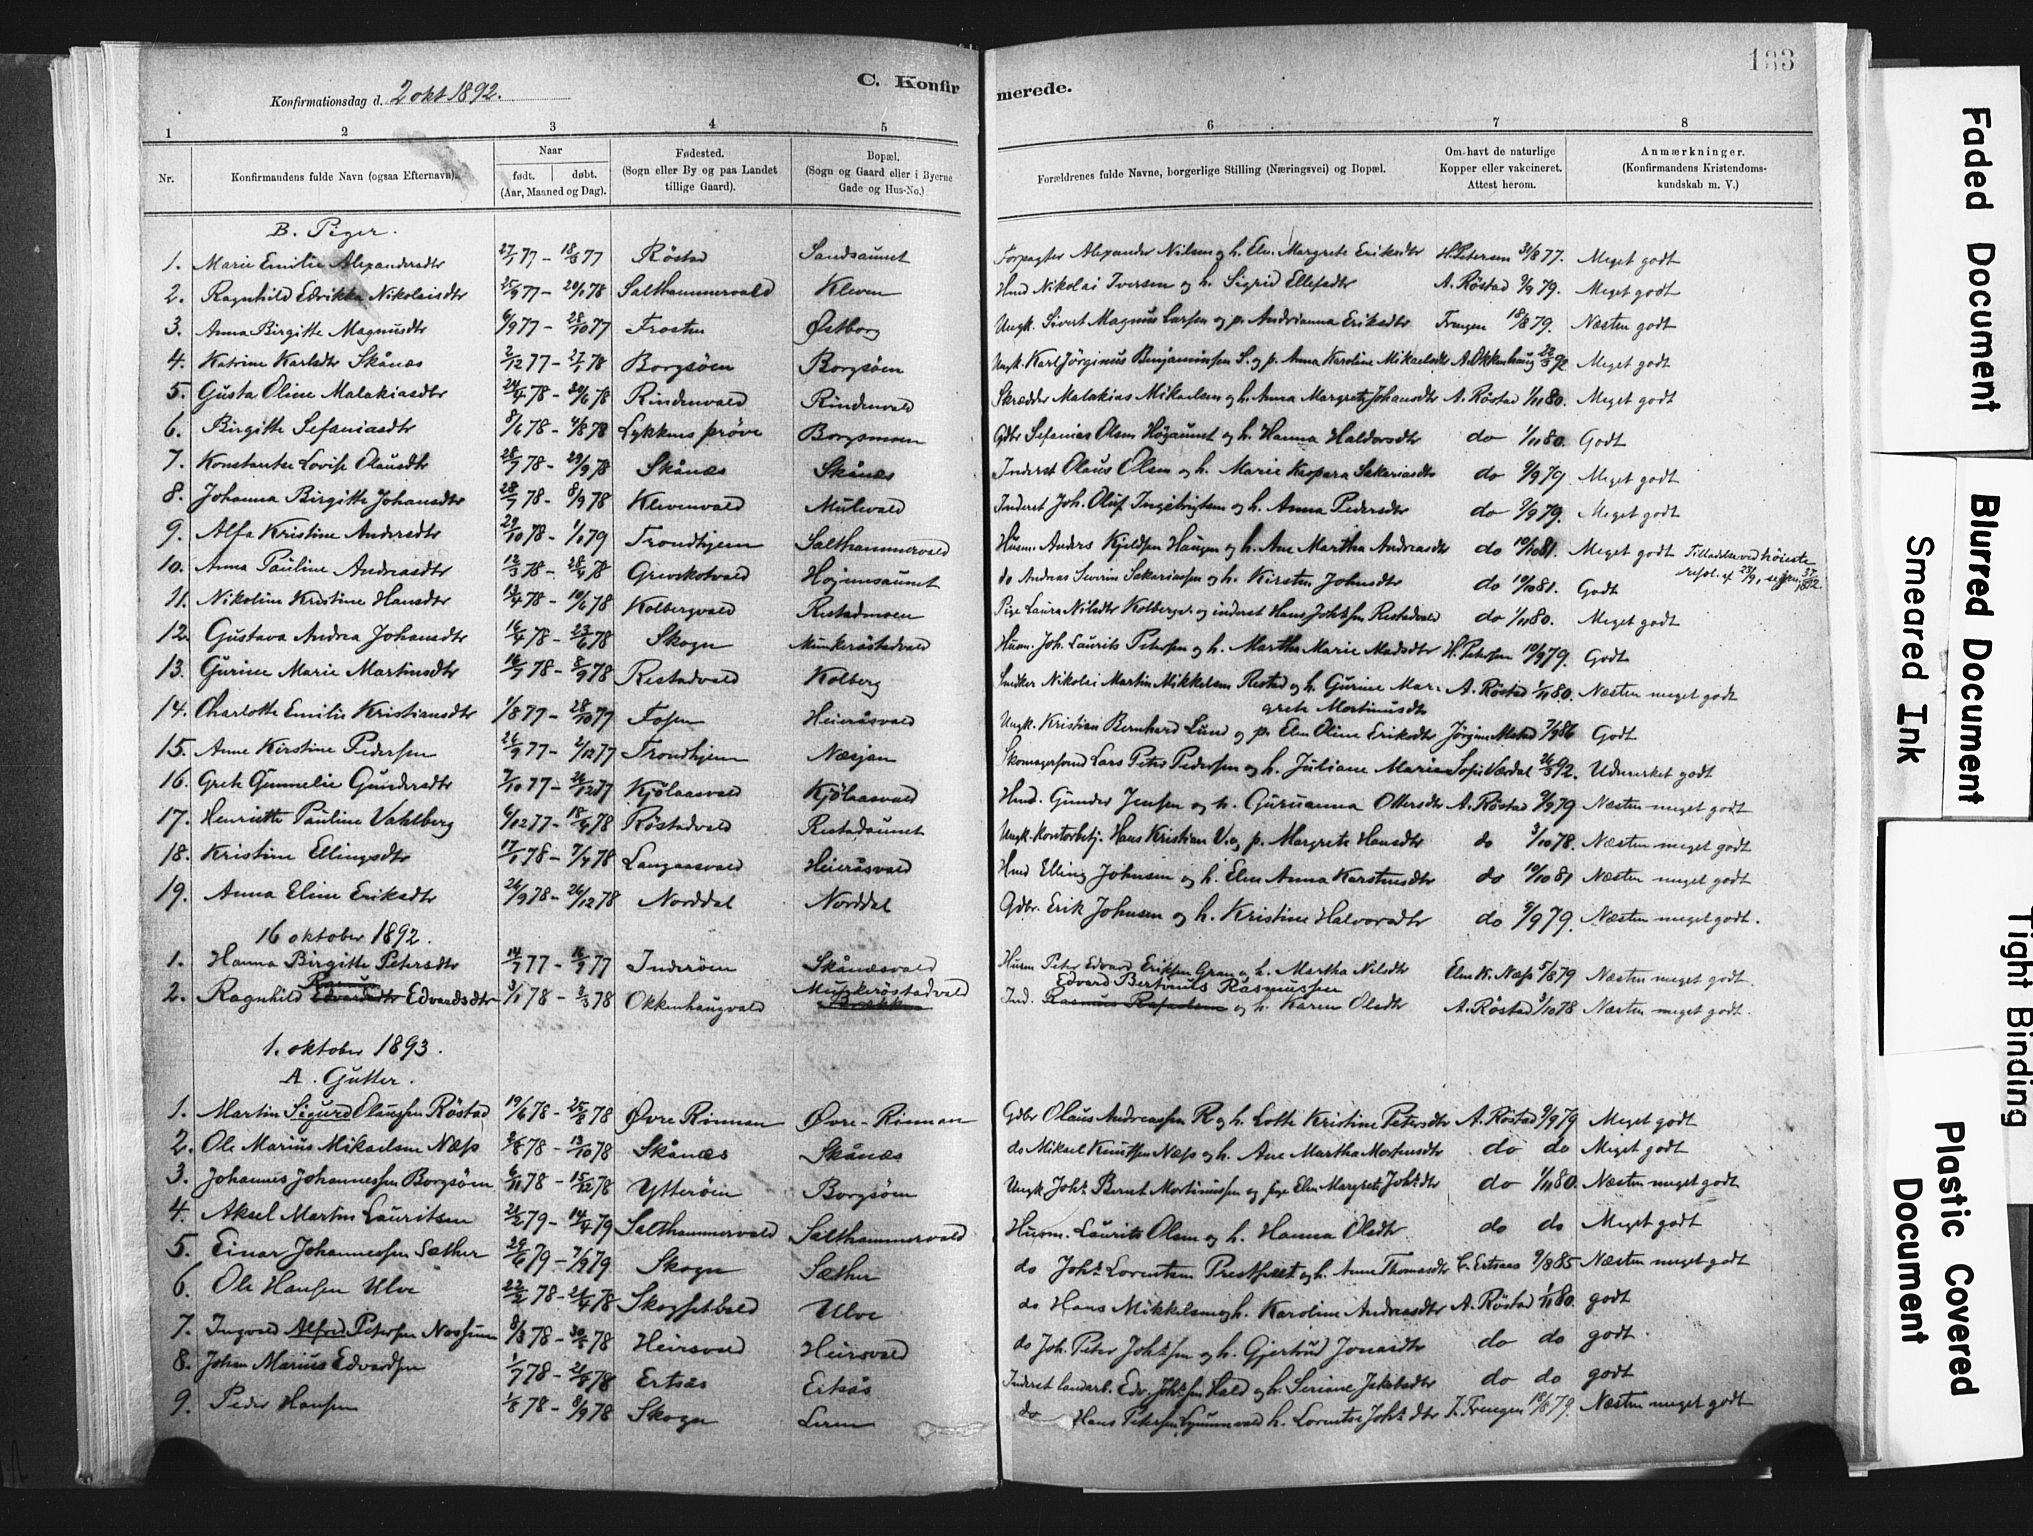 133
Konfirmationsdag d. 2 okt 1892.
C. Konfirmerede.
1 2 3 4 5 6 7 8
Nr. Konfirmandens fulde Navn (ogsaa Efternavn). Naar født. døbt. (Aar, Maaned og Dag). Fødested. (Sogn eller By og paa Landet tillige Gaard). Bopæl. (Sogn og Gaard eller i Byerne Gade og Hus-No.) Forældrenes fulde Navne, borgerlige Stilling (Næringsvei) og Bopæl. Om havt de naturlige Kopper eller vakcineret. Attest herom. Anmærkninger. (Konfirmandens Kristendomskundskab m. V.)
B. Piger.
1. Marie Emilie Alexandersdtr 27/7 77 - 18/8 77 Röstad Sandsaunet Forpagter Alexander Nilsen og h. Elen Margrete Eriksdtr H. Petersen 31/8 77. Meget godt
2. Ragnhild Edrikka Nikolaisdtr 25/9 77 - 20/1 78 Salthammervald Kleven Hmd Nikolai Iversen og h. Sigrid Ellefsdtr A. Röstad 9/9 79. Meget godt
3. Anna Birgitte Magnusdtr 6/9 77 - 28/10 77 Frosten Østborg Ungk. Sivert Magnus Larsen og p. Andrianna Eriksdtr Trengen 18/8 79. Næsten godt
4. Katrine Karlsdtr Skånæs 2/12 77 - 27/1 78 Borgsöen Borgsöen Ungk. Karl Jörginus Benjaminsen S. og p. Anna Karoline Mikaelsdtr A. Okkenhaug 22/3 92 Meget godt
5. Gusta Oline Malakiasdtr 24/4 78 - 20/6 78 Rindenvald Rindenvald Skrædder Malakias Mikaelsen og h. Anna Margrete Johansdtr A. Röstad 1/11 80. Meget godt
6. Birgitte Sefaniasdtr 8/6 78 - 4/8 78 Lykkens pröve Borgsmoen Gdbr Sefanias Olsen Högaunet og h. Hanna Haldorsdtr do 1/11 80. Godt
7. Konstantse Lovise Olausdtr 28/7 78 - 29/9 78 Skånæs Skånæs Inderst Olaus Olsen og h. Marie Kaspara Sakariasdtr do 9/9 79 Meget godt
8. Johanna Birgitte Johansdtr 28/7 78 - 8/9 78 Klevenvald Mulevald Inderst Joh. Oluf Ingebrigtsen og h. Anna Pedersdtr do 9/9 79. Meget godt
9. Alfa Kristine Andersdtr 29/10 78 - 1/1 79 Trondhjem Salthammervald Husm. Anders Kjeldsen Haugen og h. Ane Martha Andreasdtr do 10/10 81. Meget godt Tilladelse ved höieste resol. af 23/9,
10. Anna Pauline Andreasdtr 12/3 78 - 28/4 78 Grevskotvald Höjemsaunet do Andreas Severin Sakariassen og h. Kirsten Johnsdtr do 10/10 81. Godt
11. Nikoline Kristine Hansdtr 12/4 78 - 10/6 78 Kolbergvald Restadmoen Pige Laura Nilsdtr Kolbergv. og inderst Hans Johssen Restadvald do 1/11 80. Meget godt
12. Gustava Andrea Johansdtr 16/4 78 - 23/6 78 Skogn Munkeröstadvald Husm. Joh. Laurits Petersen og h. Martha Marie Madsdtr H. Petersen 10/9 79. Godt
13. Gurine Marie Martinsdtr 16/7 78 - 8/9 78 Restadvald Kolberg Snedker Nikolai Martin Mikkelsen Restad og h. Gurine Margrete Mortinusdtr A. Röstad 1/11 80. Næsten meget godt
14. Charlotte Emilie Kristiansdtr 1/8 77 - 28/10 77 Fosen Heieråsvald Ungk. Kristian Bernhard Lund og p. Elen Oline Eriksdtr Jörgine Alstad 7/9 86 Godt
15. Anne Kirstine Pedersen 26/9 77 - 2/12 77 Trondhjem Næsjan Skomagersvend Lars Peter Pedersen og h. Juliane Marie Sofie Værdal 26/3 92. Udmerket godt
16. Grete Gunnelie Gundersdtr 7/10 77 - 26/12 77 Kjölaasvald Kjölaasvald Hmd. Gunder Jensen og h. Guruanna Ottersdtr A. Röstad 9/9 79 Næsten meget godt
17. Henriette Pauline Vahlberg 6/12 77 - 18/4 78 Röstadvald Restadaunet Ungk. kontorbetj. Hans Kristian V. og p. Margrete Hansdtr do 3/10 78. Næsten meget godt
18. Kristine Ellingsdtr 17/1 78 - 7/4 78 Langaasvald Heieråsvald Hmd Elling Johnsen og h. Elen Anna Karstensdtr do 10/10 81 Næsten meget godt
19. Anna Eline Eriksdtr 26/9 78 - 26/12 78 Norddal Norddal Gdbr. Erik Johnsen og h. Kristine Halvorsdtr do 9/9 79. Næsten meget godt.
16 oktober 1892.
1. Hanna Birgitte Petersdtr 14/7 77 - 16/9 77 Inderöen Skånæsvald Husm Peter Edvard Eriksen Gran og h. Martha Nilsdtr Elen K. Næss 5/8 79 Næsten meget godt.
2. Ragnhild Edvardsdtr 3/1 78 - 3/3 78 Okkenhaugvald Munkeröstadvald Ind. Edvard Bertinius Rasmussen og h. Karen Olsdtr A. Röstad 3/10 78 Næsten meget godt.
1. oktober 1893.
A. Gutter.
1. Martin Sigurd Olaussen Röstad 19/6 78 - 25/8 78 Øvre Rinnan Øvre-Rinnan Gdbr Olaus Andreassen R og h. Lotte Kristine Petersdtr A. Röstad 9/9 79 Meget godt
2. Ole Marius Mikaelsen Næss 2/8 78 - 13/10 78 Skånæs Skånæs do Mikael Knutsen Næss og h. Ane Martha Mortensdtr do do Meget godt
3. Johannes Johannessen Borgsöen 6/11 78 - 15/12 78 Ytteröen Borgsöen Ungk. Johs. Bernt Mortinussen og pige Elen Margrete Johs.dtr do 1/11 80. Næsten meget godt
4. Aksel Martin Lauritsen 21/2 79 - 14/4 79 Salthammervald Salthammervald Husm. Laurits Olsen og h. Hanna Olsdtr do do Meget godt
5. Einar Johannessen Sæther 29/6 79 - 7/9 79 Skogn Sæther do Johs. Lorentsen og h. Anne Thomasdtr Ertsaas 9/8 85 Næsten meget godt
6. Ole Hansen Ulve 22/2 78 - 21/4 78 Ulve do Hans Mikkelsen og h. Karoline Andreasdtr A. Röstad 1/11 80. godt
7. Ingvald Alfred Petersen 8/3 78 - 30/5 78 Heirsvald Heirsvald do Joh. Peter Johssen og h. Gjertrud Jonasdtr do do godt.
8. Johan Marius Edvardsen 1/7 78 - 21/9 78 Ertsås Ertsås Inderst landarb. Edv. Johssen Hald og h. Seriane Jakobsdtr do do godt
9. Peder Hansen 1/8 78 - 8/9 78 Skogn Leren do Hans Petersen h. Lorentse Johs.dtr Trengen 18/6 79. Næsten meget godt
Faded Document
Blurred Document
Smeared Ink
Tight Binding
Plastic Covered Document